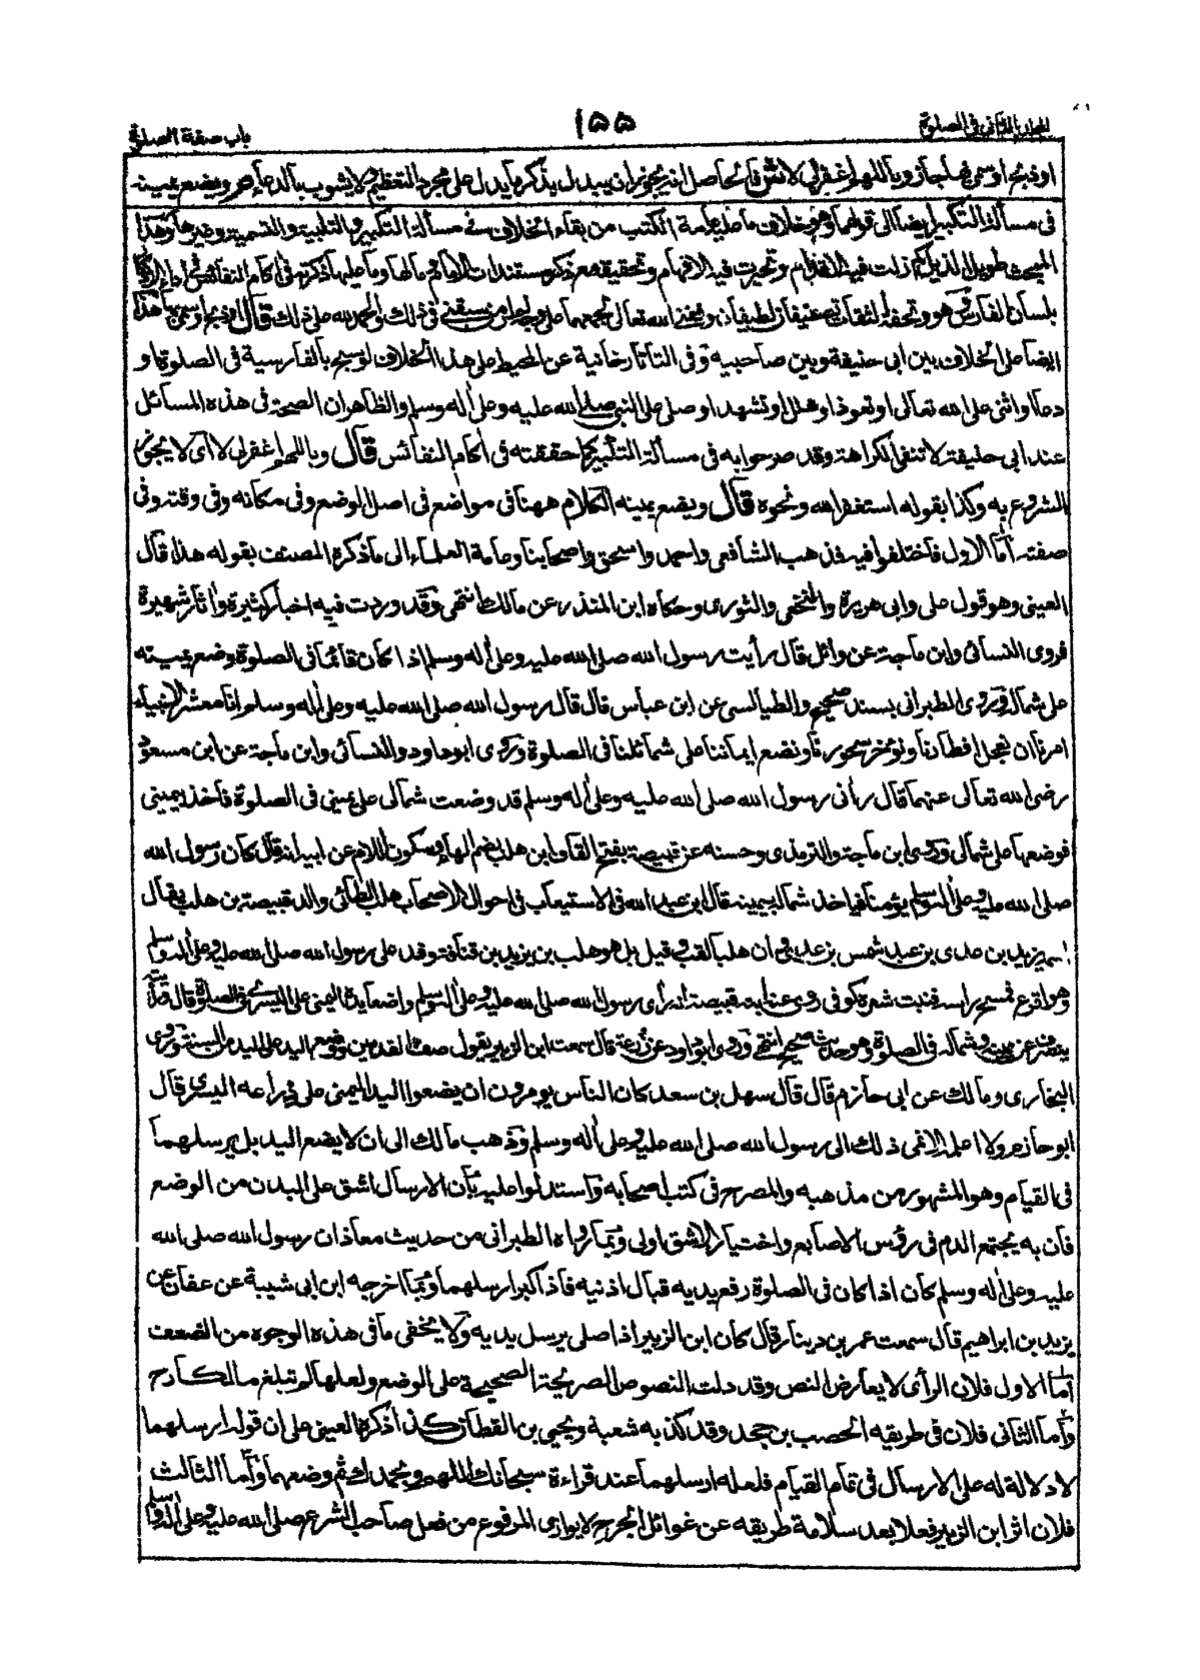 باب صفة الصلوة
۱۵۵
المجلد الثانى فى الصلوة
او ذبح او سمى بها جاز وباللهم اغفر لى لا ش فالحاصل انه يجوز ان يبدل بذكر ما يدل على مجرد التعظيم ولا يشوب بالدعاء هو ويضع يمينه
فى مسألة التكبير ايضا الى قولهما وهو خلاف ما عليه عامة الكتب من بقاء الخلاف فى مسألة التكبير والتلبية والتسمية وغيرها وهذا
المبحث طويل الذيل كم زلت فيه الاقدام وتحيرت فيه الافهام وتحقيقه مع ذكر مستندات الامام ما لها وما عليها ذكرته فى اكام النفائس فى اداء الاذكار
بلسان الفارس هو وتحفة الثقات بحمد الله تعالى على ذلك قال او ذبح او سمى بها هذا
ايضا على الخلاف بين ابى حنيفة وبين صاحبيه وفى التاتارخانية عن المحيط على هذا الخلاف لو سبح بالفارسية فى الصلوة او
دعا او اثنى على الله تعالى او تعوذ او هلل او تشهد او صلى على النبى صلى الله عليه وعلى اله وسلم والظاهر ان الصحة فى هذه المسائل
عند ابى حنيفة لا تنفى الكراهة وقد صرحوا به فى مسألة التكبير كما حققته فى اكام النفائس قال وباللهم اغفر لى لا اى لا يجوز
الشروع به وكذا بقوله استغفر الله ونحوه قال ويضع يمينه الكلام ههنا فى مواضع فى اصل الوضع وفى مكانه وفى وقته وفى
صفته اما الاول فاختلفوا فيه فذهب الشافعى واحمد واسحق واصحابنا وعامة العلماء الى ما ذكره المصنف بقوله هذا قال
العينى وهو قول على وابى هريرة والنخعى والثورى وحكاه ابن المنذر عن مالك انتهى وقد وردت فيه اخبار كثيرة واثار شهيرة
فروى النسائى وابن ماجة عن وائل قال رأيت رسول الله صلى الله عليه وعلى اله وسلم اذا كان قائما فى الصلوة وضع يمينه
على شماله وروى الطبرانى بسند صحيح والطيالسى عن ابن عباس قال قال رسول الله صلى الله عليه وعلى اله وسلم انا معشر الانبياء
امرنا ان نعجل افطارنا ونؤخر سحورنا ونضع ايماننا على شمائلنا فى الصلوة وروى ابو داود والنسائى وابن ماجة عن ابن مسعود
رضى الله تعالى عنهما قال رأنى رسول الله صلى الله عليه وعلى اله وسلم قد وضعت شمالى على يمينى فى الصلوة فاخذ بيمينى
فوضعها على شمالى وروى ابن ماجة والترمذى وحسنه عن قبيصة بفتح القاف ابن هلب بضم الهاء وسكون اللام عن ابيه انه قال كان رسول الله
صلى الله عليه وعلى اله وسلم يؤمنا فياخذ شماله بيمينه قال ابن عبد الله فى الاستيعاب فى احوال الاصحاب هلب الطائى والد قبيصة بن هلب يقال
اسمه يزيد بن عدى بن عبد شمس بن عدى وان هلبا لقب وقيل بل هو هلب بن يزيد بن قنافة وفد على رسول الله صلى الله عليه وعلى اله وسلم
وهو اقرع فمسح راسه فنبت شعره كوفى روى عنه ابنه قبيصة انه رأى رسول الله صلى الله عليه وعلى اله وسلم واضعا يده اليمنى على اليسرى فى الصلوة قال ورأيته
ينصرف عن يمينه وشماله فى الصلوة وهو حديث صحيح انتهى وروى ابو داود عن زرعة قال سمعت ابن الزبير يقول صف القدمين ووضع اليد على اليد من السنة وروى
البخارى ومالك عن ابى حازم قال قال سهل بن سعد كان الناس يؤمرون ان يضعوا اليد اليمنى على ذراعه اليسرى قال
ابو حازم ولا اعلمه الا ينمى ذلك الى رسول الله صلى الله عليه وعلى اله وسلم وذهب مالك الى ان لا يضع اليد بل يرسلهما
فى القيام وهو المشهور من مذهبه والمصرح فى كتب اصحابه واستدلوا عليه بان الارسال اشق على البدن من الوضع
فان به يجتمع الدم فى رؤس الاصابع واختيار الاشق اولى وبما رواه الطبرانى من حديث معاذ ان رسول الله صلى الله
عليه وعلى اله وسلم كان اذا كان فى الصلوة رفع يديه قبال اذنيه فاذا كبر ارسلهما وبما اخرجه ابن ابى شيبة عن عفان عن
يزيد بن ابراهيم قال سمعت عمر بن دينار قال كان ابن الزبير اذا صلى يرسل يديه ولا يخفى ما فى هذه الوجوه من الضعف
اما الاول فلان الرأى لا يعارض النص وقد دلت النصوص الصريحة الصحيحة على الوضع ولعلها لم تبلغ مالكا رح
واما الثانى فلان فى طريقه الخصب بن جحد وقد كذبه شعبة ويحيى بن القطان كذا ذكره العينى على ان قوله ارسلهما
لا دلالة له على الارسال فى تمام القيام فلعله ارسلهما عند قراءة سبحانك اللهم وبحمدك ثم وضعهما واما الثالث
فلان اثر ابن الزبير فعلا بعد سلامة طريقه عن غوائل الجرح لا يوازى المرفوع من فعل صاحب الشرع صلى الله عليه وعلى اله وسلم